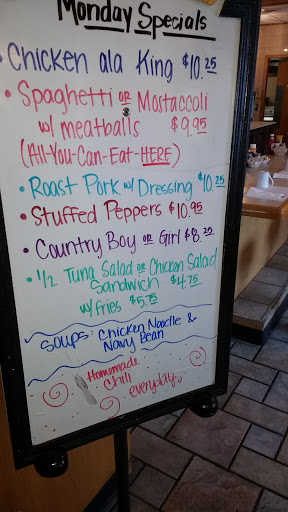 Monday Specials
• Chicken ala King $10.25
• Spaghetti or Mostaccoli
w/ meatballs $9.95
(All-You-Can-Eat-HERE)
• Roast Pork w/ Dressing $10.25
• Stuffed Peppers $10.95
• Country Boy or Girl $8.25
• 1/2 Tuna Salad or Chicken Salad
Sandwich $4.75
w/ fries $5.75
Soups: Chicken Noodle &
Navy Bean
Homemade
Chili
everyday